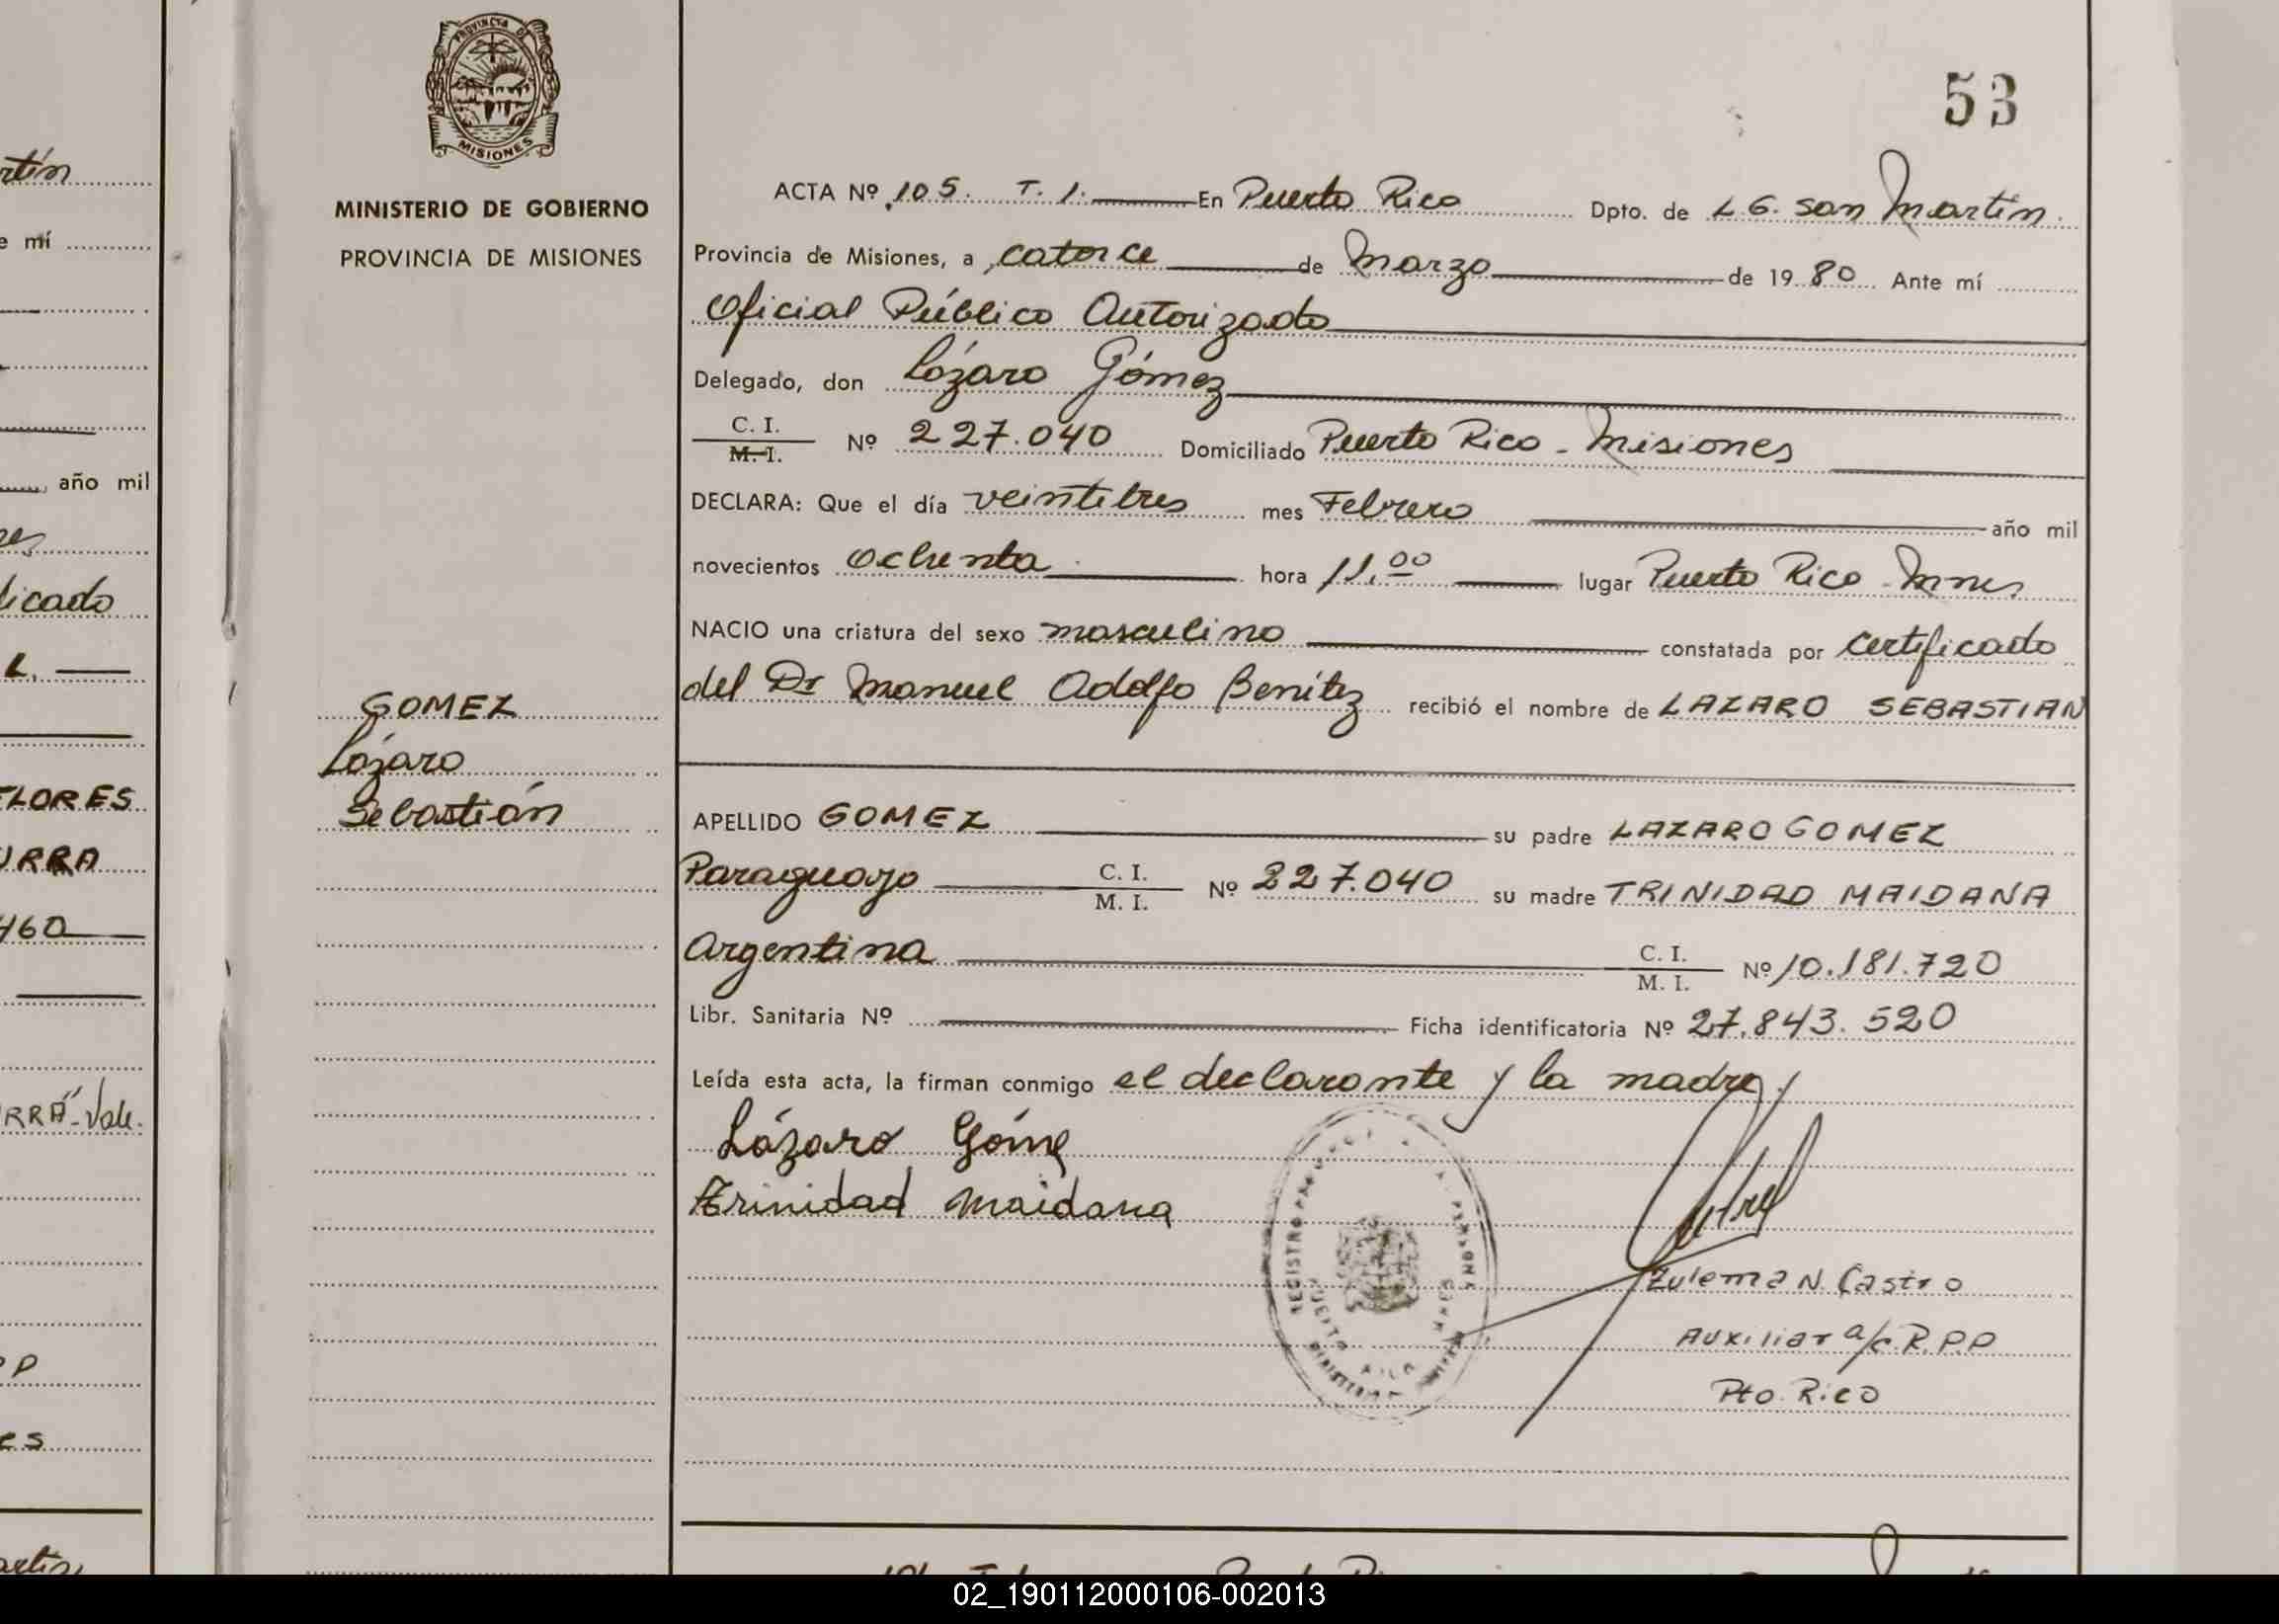 PROVINCIA DE
MISIONES
MINISTERIO DE GOBIERNO
PROVINCIA DE MISIONES
GOMEZ
Lázaro
Sebastián
53
ACTA Nº 105. T. 1. En Puerto Rico Dpto. de L.G. San Martín.
Provincia de Misiones, a catorce de Marzo de 1980 Ante mí
Oficial Público Autorizado
Delegado, don Lázaro Gómez
C. I.
M. I. Nº 227.040 Domiciliado Puerto Rico - Misiones
DECLARA: Que el día veintitres mes Febrero año mil
novecientos ochenta hora 11,00 lugar Puerto Rico - Mnes
NACIO una criatura del sexo masculino constatada por certificado
del Dr Manuel Adolfo Benítez recibió el nombre de LAZARO SEBASTIAN
APELLIDO GOMEZ su padre LAZARO GOMEZ
Paraguayo C. I.
M. I. Nº 227.040 su madre TRINIDAD MAIDANA
Argentina C. I.
M. I. Nº 10.181.720
Libr. Sanitaria Nº Ficha identificatoria Nº 27.843.520
Leída esta acta, la firman conmigo el declarante y la madre
Lázaro Góme
Trinidad Maidana
Zulema N. Castro
Auxiliar a/c R.P.P
Pto. Rico
rtín
e mí
año mil
es
licado
L.
FLORES
URRA
460
RRA"-Vale.
P
es
artín
02_190112000106-002013